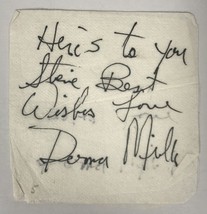 Here's to you
Steve Best
Wishes Love
Donna Mills